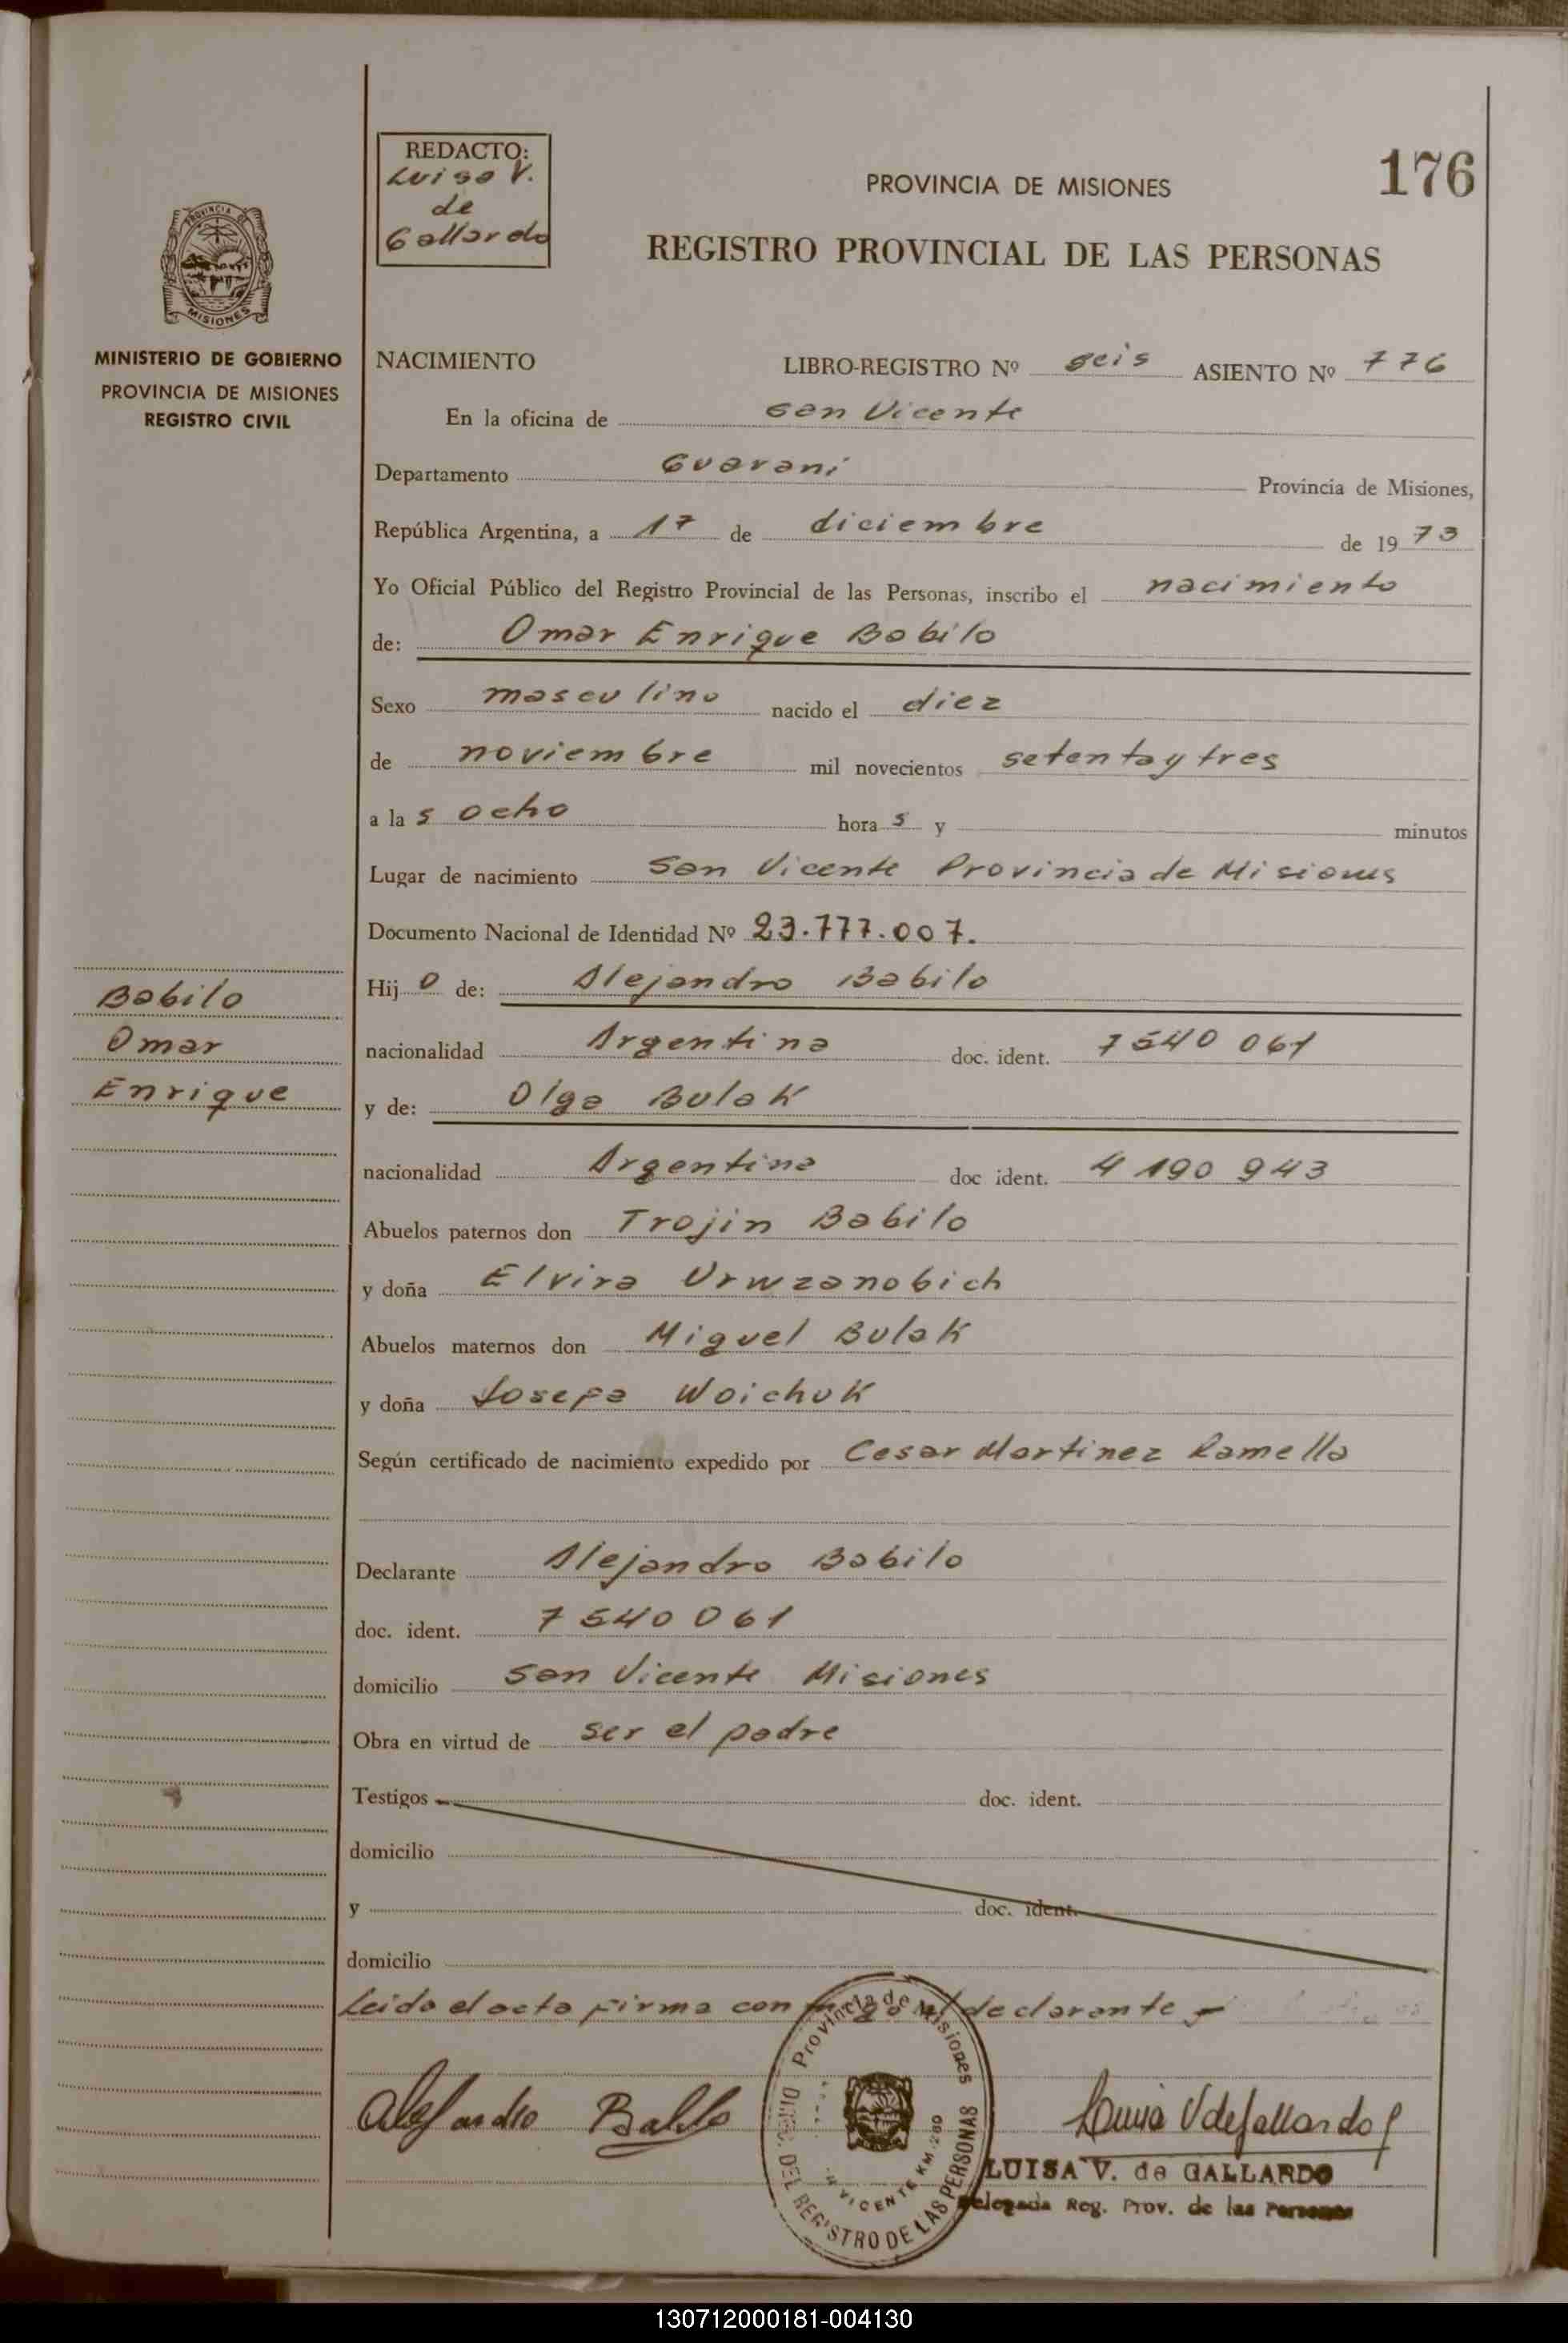 REDACTO:
Luisa V.
de
Gallardo
PROVINCIA DE MISIONES
176
REGISTRO PROVINCIAL DE LAS PERSONAS
PROVINCIA DE
MISIONES
MINISTERIO DE GOBIERNO
PROVINCIA DE MISIONES
REGISTRO CIVIL
NACIMIENTO LIBRO-REGISTRO Nº seis ASIENTO Nº 776
En la oficina de San Vicente
Departamento Guarani Provincia de Misiones,
República Argentina, a 17 de diciembre de 1973
Yo Oficial Público del Registro Provincial de las Personas, inscribo el nacimiento
de: Omar Enrique Babilo
Sexo masculino nacido el diez
de noviembre mil novecientos setenta y tres
a las ocho horas y minutos
Lugar de nacimiento San Vicente Provincia de Misiones
Documento Nacional de Identidad Nº 23.777.007.
Babilo
Omar
Enrique
Hijo de: Alejandro Babilo
nacionalidad Argentina doc. ident. 7540 061
y de: Olga Bulak
nacionalidad Argentina doc ident. 4 190 943
Abuelos paternos don Trojin Babilo
y doña Elvira Urwzanobich
Abuelos maternos don Miguel Bulak
y doña Josefa Woichuk
Según certificado de nacimiento expedido por Cesar Martinez Ramella
Declarante Alejandro Babilo
doc. ident. 7 540 061
domicilio San Vicente Misiones
Obra en virtud de ser el padre
Testigos doc. ident.
domicilio
y doc. ident.
domicilio
Leida el acta firma conmigo el declarante
Alejandro Babilo
Provincia de Misiones
DEL REGISTRO DE LAS PERSONAS
VICENTE KM. 280
Luisa V de Gallardo
LUISA V. de GALLARDO
Delegada Reg. Prov. de las Personas
130712000181-004130